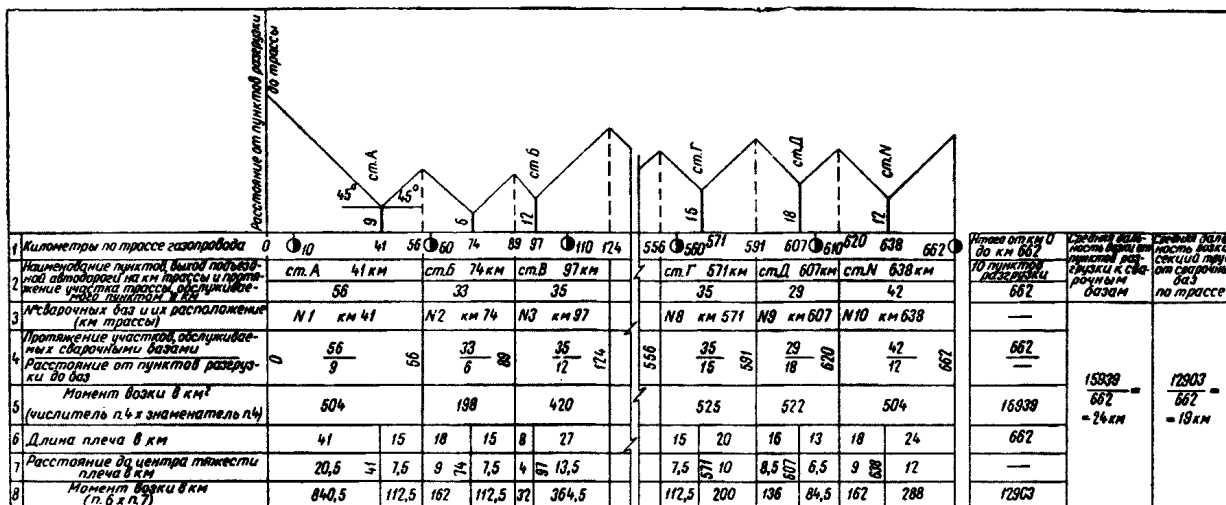 Расстояние от пунктов разгрузки
до трассы
ст.А
ст.б
ст.Г
ст.Д
ст.N
45° 45°
9 6 12 15 18 12
1 Километры по трассе газопровода 0 10 41 56 60 74 89 97 110 124 556 560 571 591 607 610 620 638 662
Итого от км 0
до км 662
10 пунктов
разгрузки
Средняя даль-
ность возки от
пунктов раз-
грузки к сва-
рочным
базам
Средняя даль
ность возки
секций труб
от сварочных
баз
по трассе
2 Наименование пунктов, выход подъезд-
ной автодороги на км трассы и протя-
жение участка трассы, обслуживае-
мого пунктом в км
ст. А 41 км ст.б 74 км ст. В 97км ст. Г 571км ст.Д 607км ст.N 638 км
56 33 35 35 29 42 662
3 №сварочных баз и их расположение
(км трассы)
N1 км 41 N2 км 74 N3 км 97 N8 км 571 N9 км 607 N10 км 638 —
4 Протяжение участков, обслуживае-
мых сварочными базами
Расстояние от пунктов разгруз-
ки до баз
0 56 56 33 89 35 124 556 35 591 29 620 42 662 662
9 6 12 15 18 12 —
5 Момент возки в км²
(числитель п.4 х знаменатель п.4)
504 198 420 525 522 504 15939
15939
662 =
= 24 км
12903
662 =
= 19 км
6 Длина плеча в км 41 15 18 15 8 27 15 20 16 13 18 24 662
7 Расстояние до центра тяжести
плеча в км
20,5 41 7,5 9 74 7,5 4 97 13,5 7,5 571 10 8,5 607 6,5 9 638 12 —
8 Момент возки в км
(п. 6 х п. 7)
840,5 112,5 162 112,5 32 364,5 112,5 200 136 84,5 162 288 12903